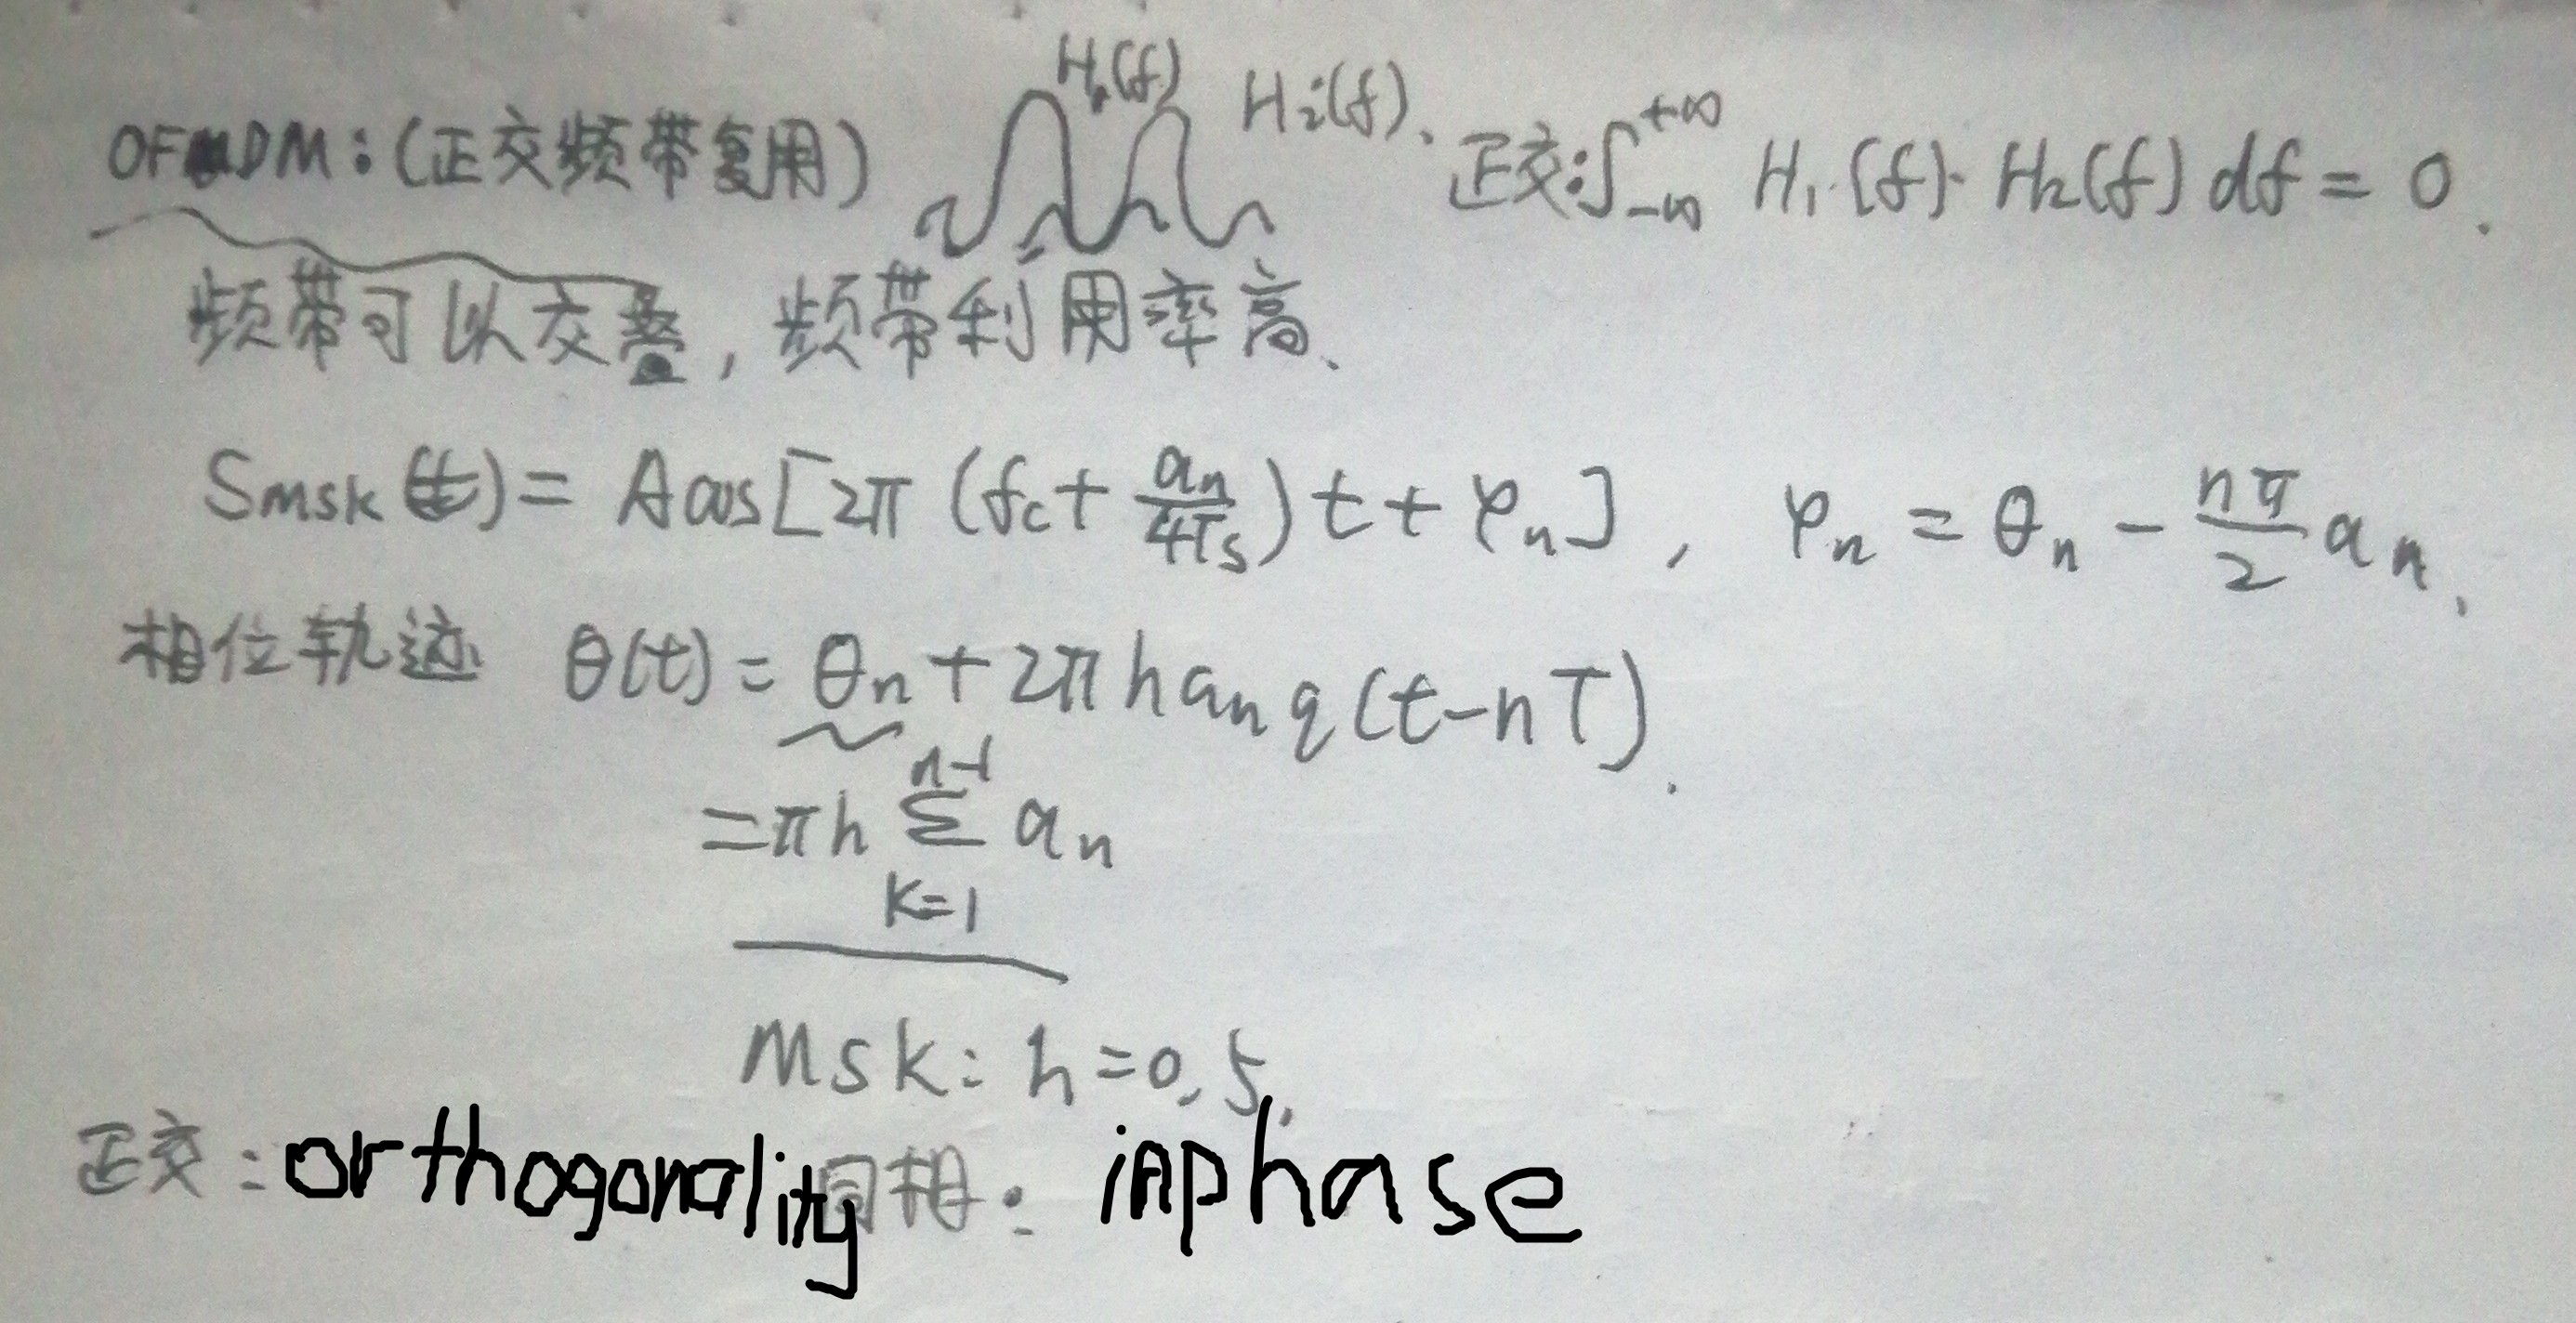 OFDM:(正交频带复用) H₁(f) H₂(f). 正交:∫_{-∞}^{+∞} H₁(f)·H₂(f) df = 0.
频带可以交叠,频带利用率高、
Smsk(t) = Acos[2π(fc + an/4Ts)t + φn], φn = θn - nπ/2 an.
相位轨迹 θ(t) = θn + 2πh an q(t-nT).
= πh Σ_{K=1}^{n-1} an
Msk: h=0.5.
正交: orthogonality 同相: inphase